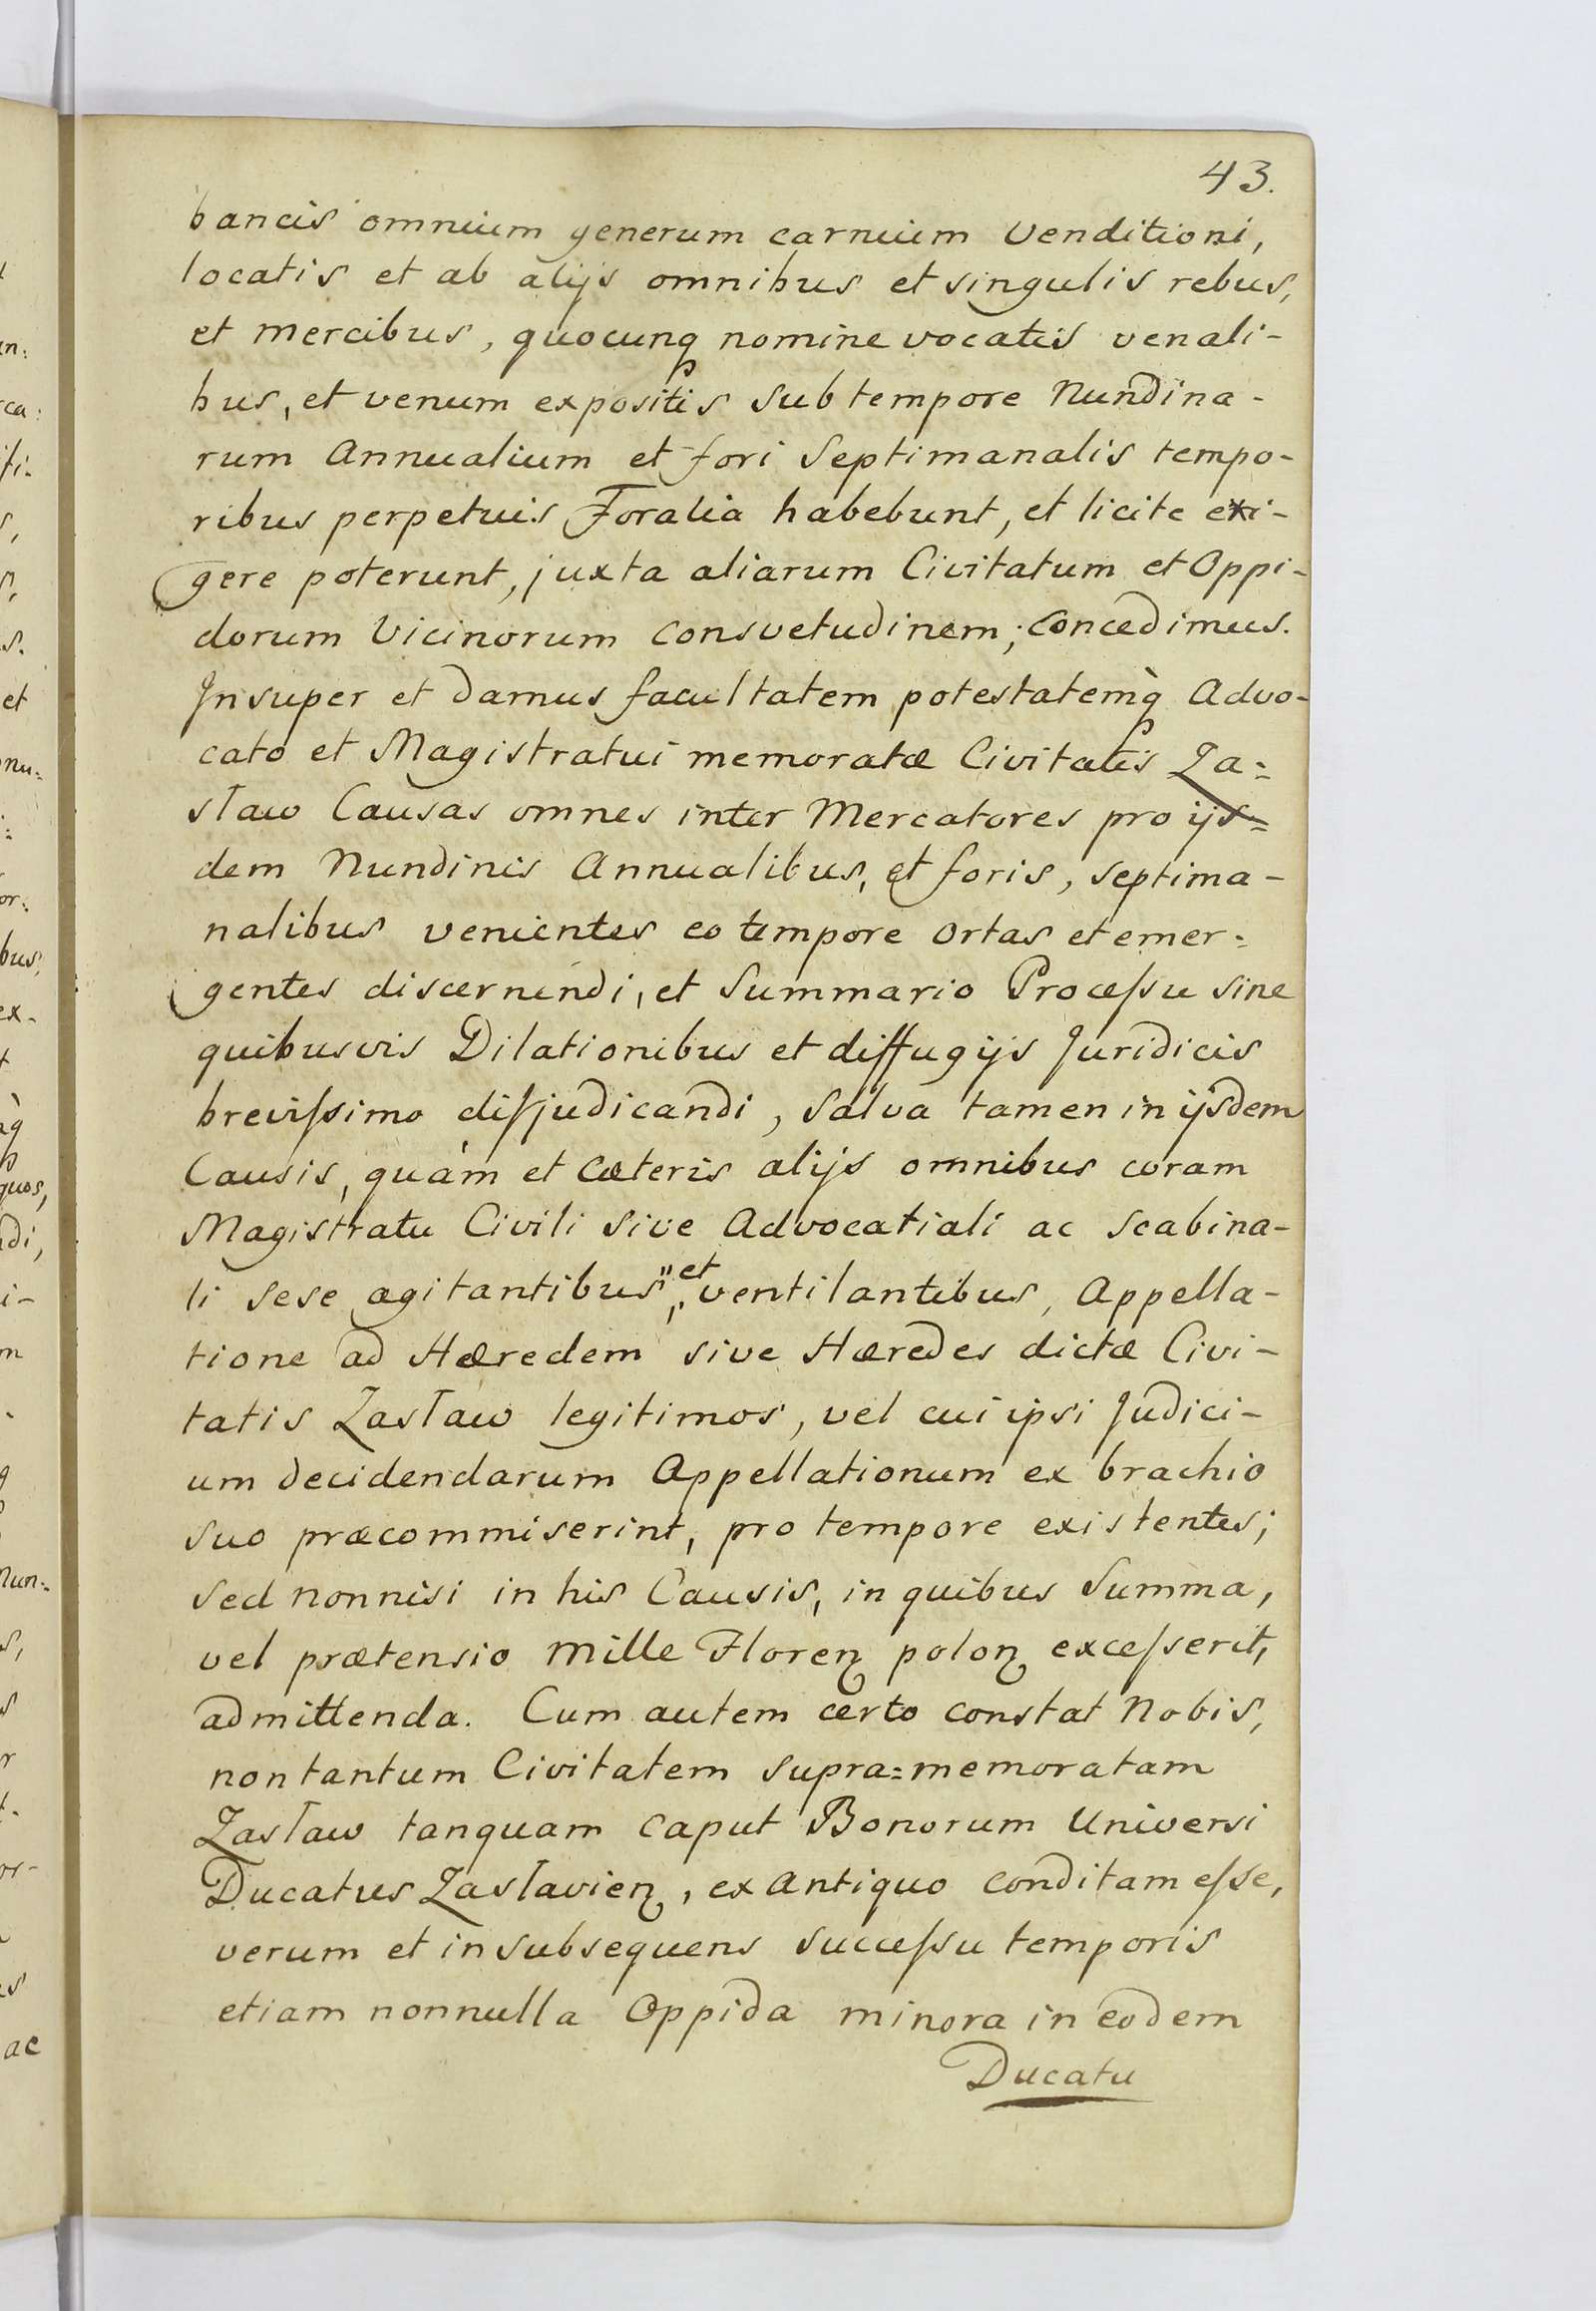 43.
bancis omnium generum carnium Venditioni,
locatis et ab alijs omnibus et singulis rebus,
et mercibus, quocunq nomine vocatis venali-
bus, et venum expositis sub tempore Nundina-
rum Annualium et fori Septimanalis tempo-
ribus perpetuis Foralia habebunt, et licite exi-
gere poterunt, juxta aliarum Civitatum et Oppi-
dorum Vicinorum consvetudinem; concedimus.
Insuper et damus facultatem potestatemq̀ Advo-
cato et Magistratui memoratæ Civitatis Za=
sław Causas omnes inter Mercatores pro ijs=
dem Nundinis Annualibus, et foris, septima-
nalibus venientes eo tempore ortas et emer=
gentes discernendi, et Summario Proceſsu sine
quibusvis Dilationibus et diffugijs Juridicis
breviſsimo diſjudicandi, salva tamen in ijsdem
Causis, quàm et cæteris alijs omnibus coram
Magistratu Civili sive Advocatiali ac scabina-
li sese agitantibus, et ventilantibus, Appella-
tione ad Hæredem sive Hæredes dictæ Civi-
tatis Zasław legitimos, vel cui ipsi Judici-
um decidendarum Appellationum ex brachio
suo præcommiserint, pro tempore existentes;
sed nonnisi in his Causis, in quibus Summa,
vel prætensio Mille Floren polon exceſserit,
admittenda. Cum autem certo constat Nobis,
non tantum Civitatem supra=memoratam
Zasław tanquam caput Bonorum Universi
Ducatus Zasłavien, ex antiquo conditam eſse,
verum et in subsequens succeſsu temporis
etiam nonnulla Oppida minora in eodem
Ducatu